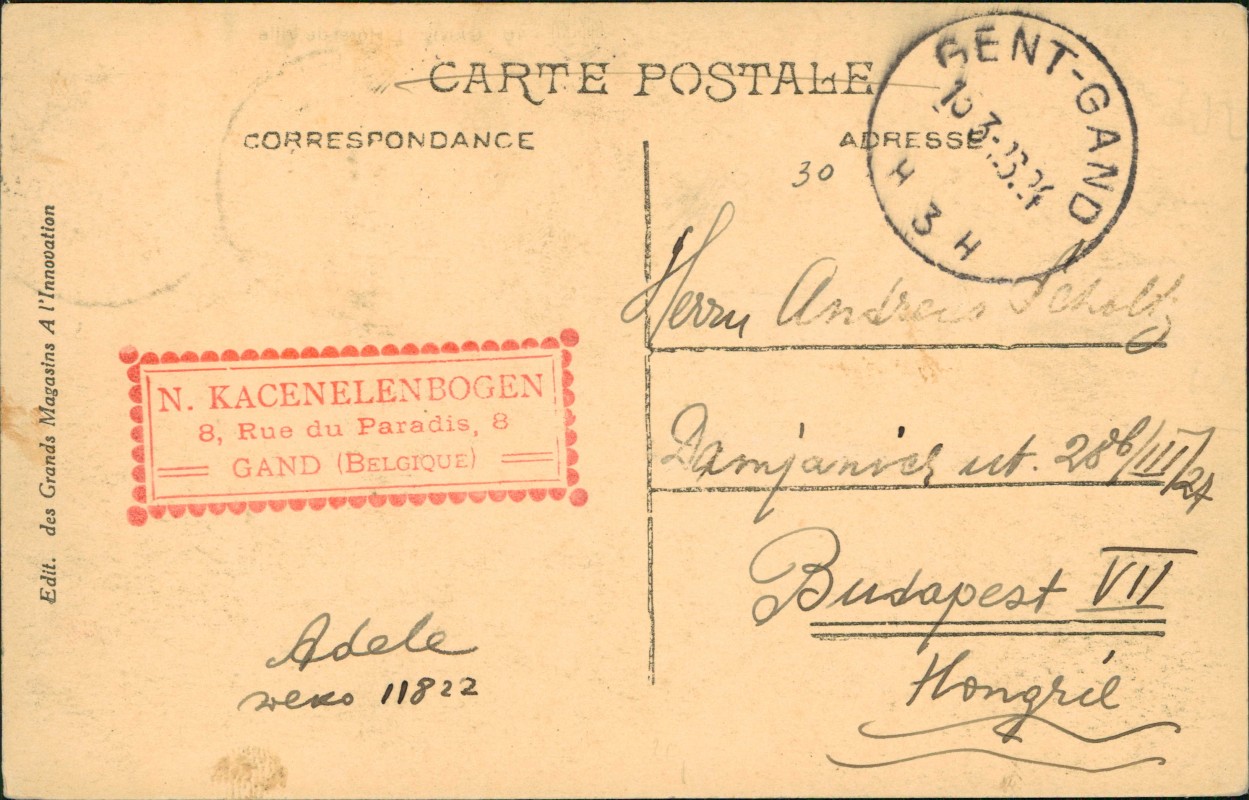 CARTE POSTALE
CORRESPONDANCE
ADRESSE
GENT-GAND
H 3 H
30
Edit. des Grands Magasins A l'Innovation
N. KACENELENBOGEN
8, Rue du Paradis, 8
GAND (BELGIQUE)
Adele
weko 11822
Herrn Andreas Scholtz
Damjanich ut. 28b/III/27
Budapest VII
Hongrie